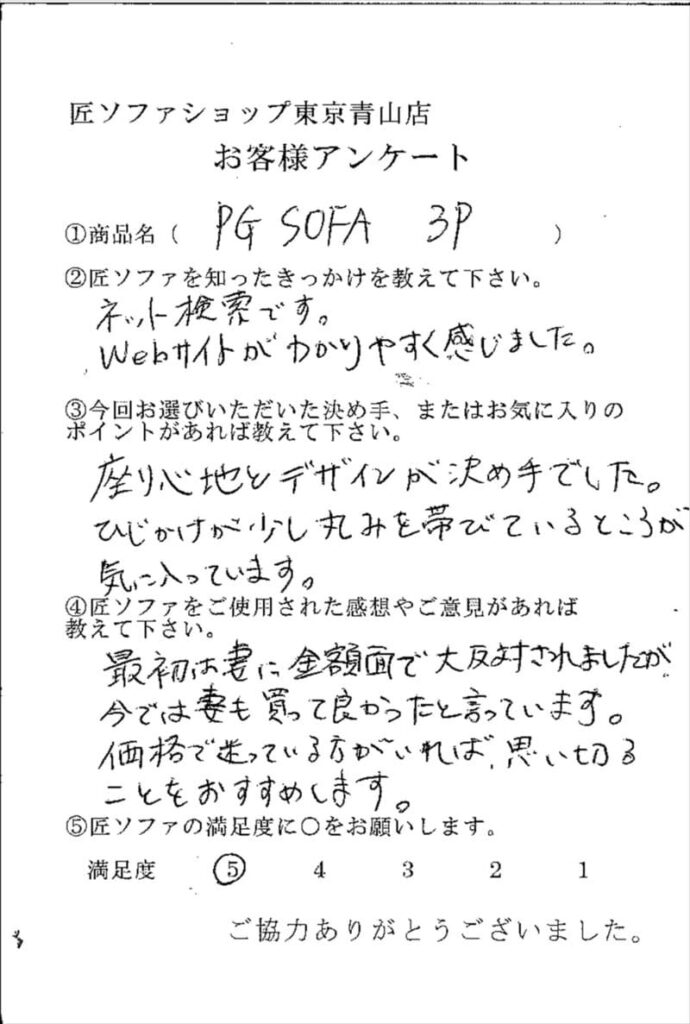 匠ソファショップ東京青山店
お客様アンケート
①商品名（ PG SOFA 3P ）
②匠ソファを知ったきっかけを教えて下さい。
ネット検索です。
Webサイトがわかりやすく感じました。
③今回お選びいただいた決め手、またはお気に入りの
ポイントがあれば教えて下さい。
座り心地とデザインが決め手でした。
ひじかけが少し丸みを帯びているところが
気に入っています。
④匠ソファをご使用された感想やご意見があれば
教えて下さい。
最初は妻に金額面で大反対されましたが
今では妻も買って良かったと言っています。
価格で迷っている方がいれば、思い切る
ことをおすすめします。
⑤匠ソファの満足度に〇をお願いします。
満足度 5 4 3 2 1
ご協力ありがとうございました。